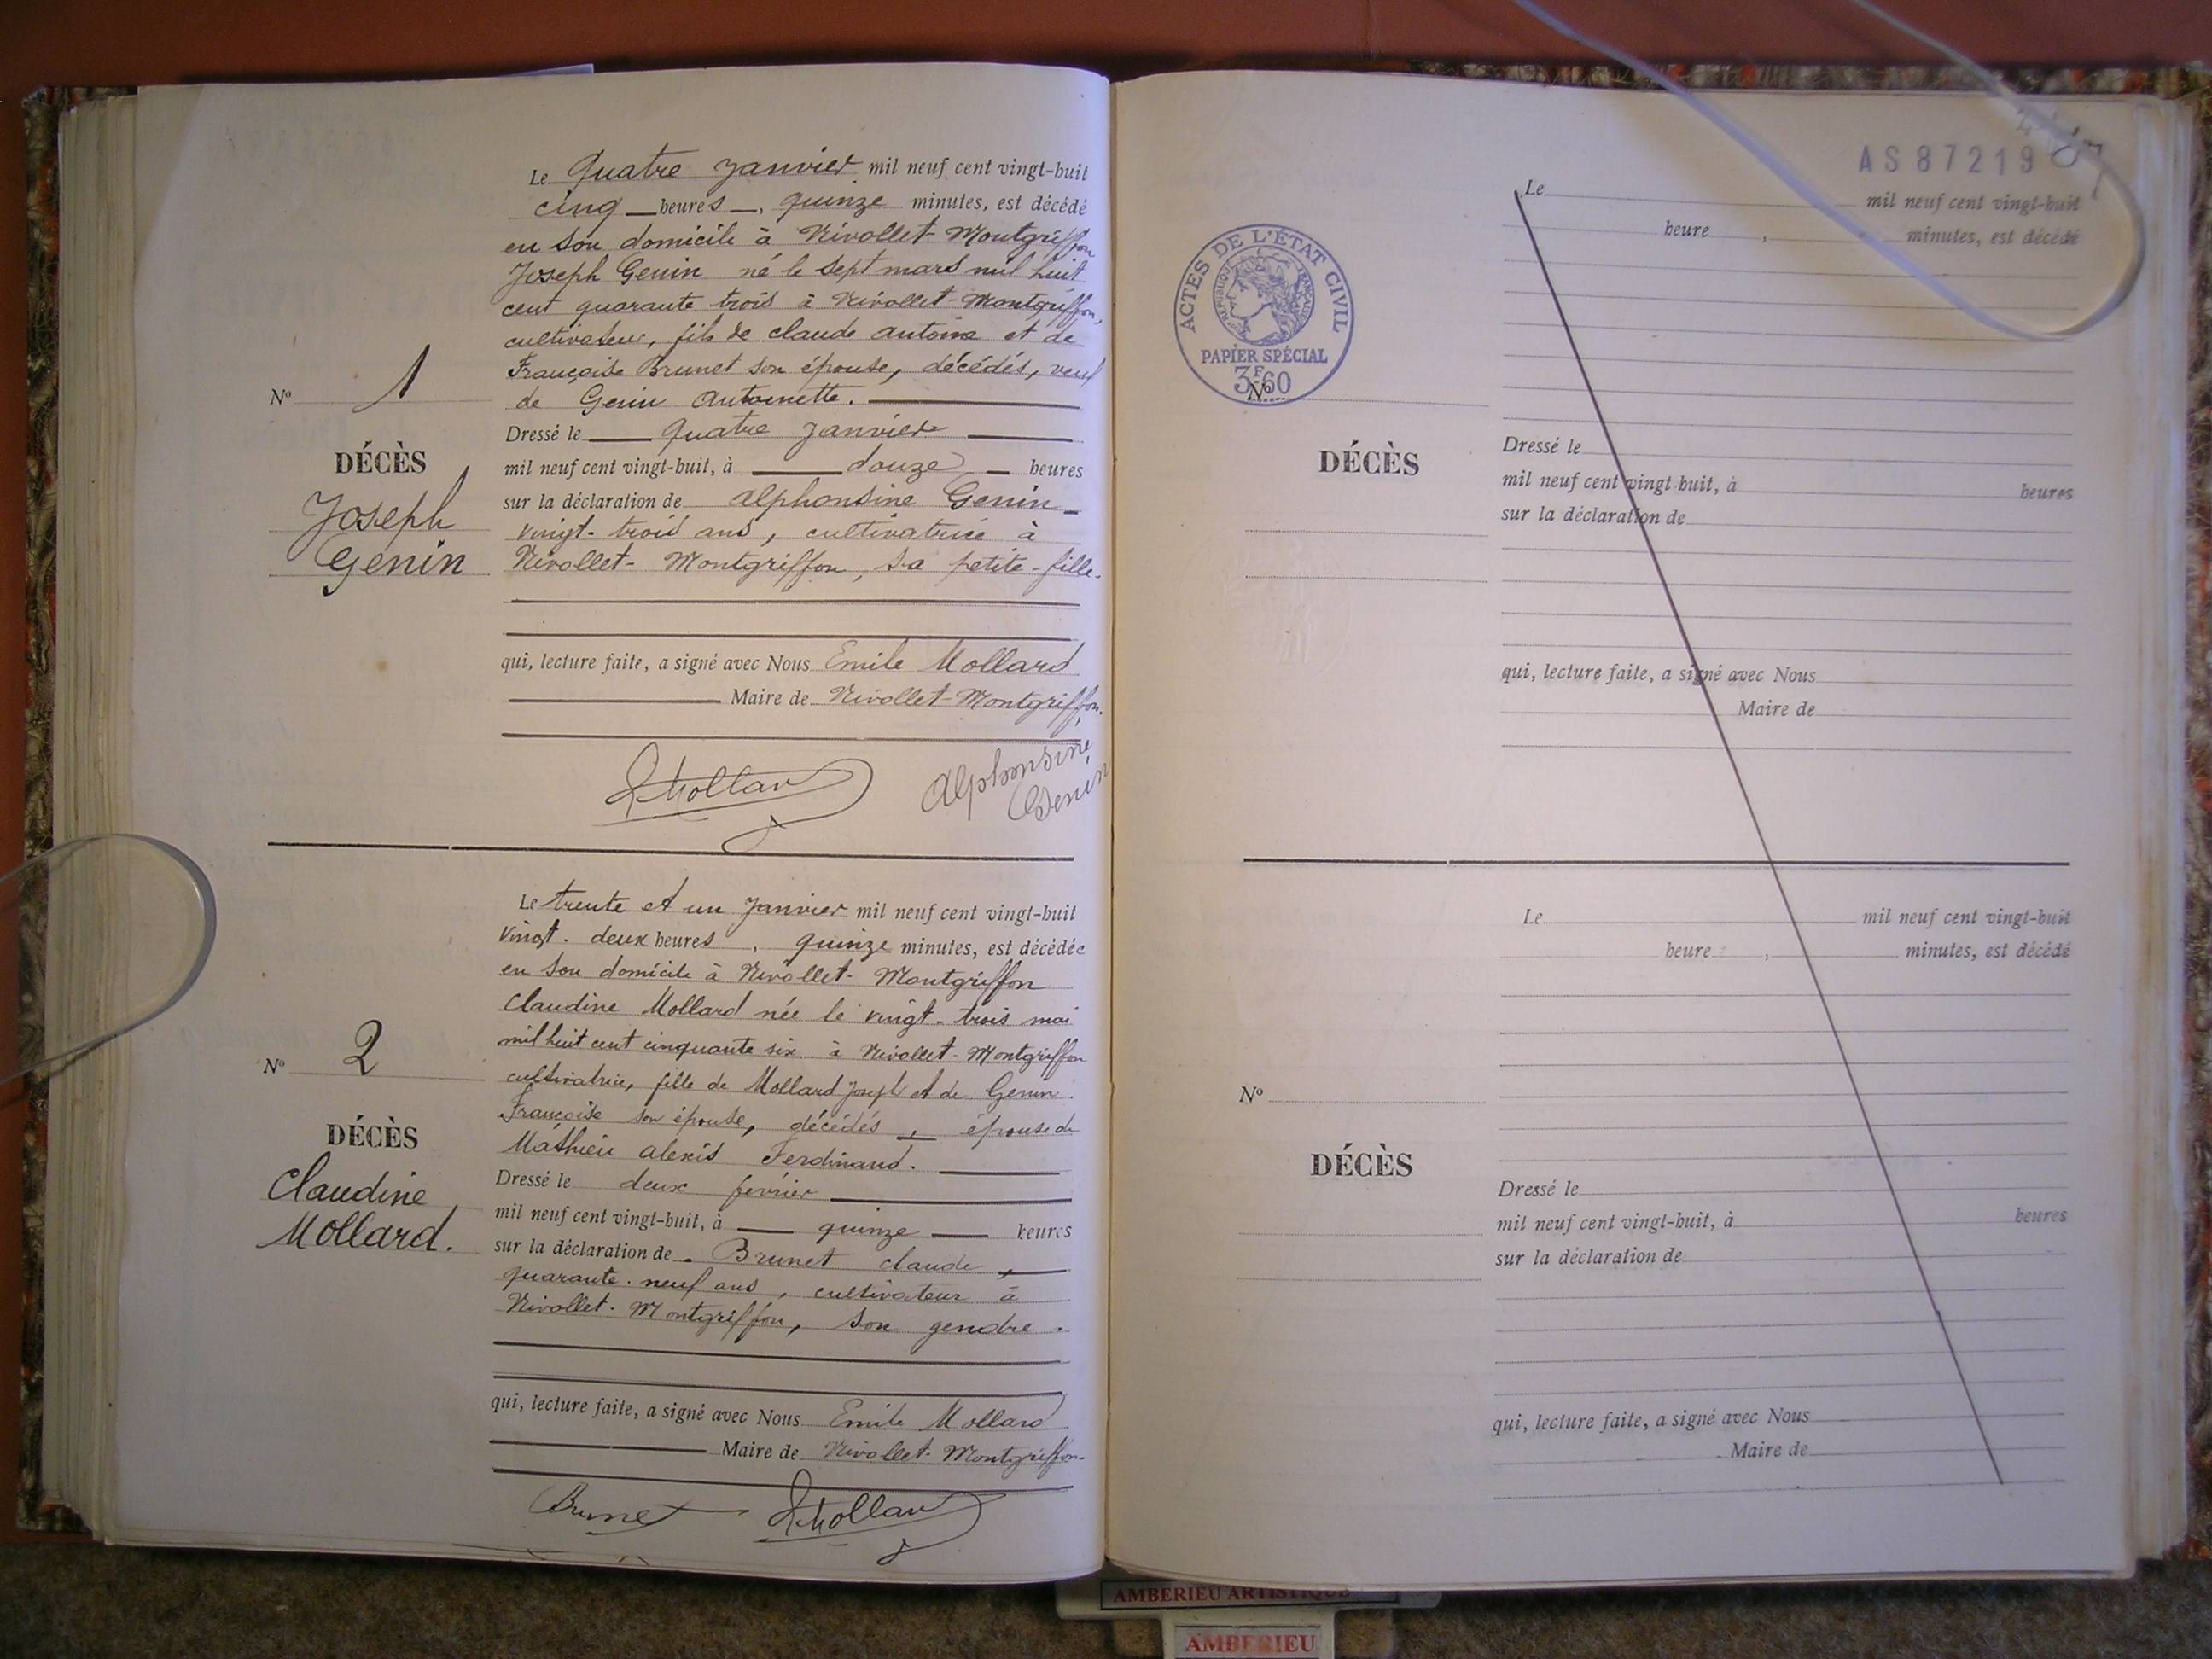 Le Quatre Janvier mil neuf cent vingt-huit
cinq heures, quinze minutes, est décédé
en son domicile à Nivollet-Montgriffon
Joseph Genin né le sept mars mil huit
cent quarante trois à Nivollet-Montgriffon,
cultivateur, fils de Claude Antoine et de
Françoise Brunet son épouse, décédés, veuf
de Genin Antoinette.
Nº 1
Dressé le quatre Janvier
DÉCÈS
mil neuf cent vingt-huit, à douze heures
sur la déclaration de Alphonsine Genin
Joseph
vingt-trois ans, cultivatrice à
Genin
Nivollet-Montgriffon, sa petite-fille.
qui, lecture faite, a signé avec Nous Emile Mollard
Maire de Nivollet-Montgriffon.
E Mollard
Alphonsine
Genin
Le trente et un Janvier mil neuf cent vingt-huit
vingt-deux heures, quinze minutes, est décédée
en son domicile à Nivollet-Montgriffon
Claudine Mollard née le vingt-trois mai
mil huit cent cinquante six à Nivollet-Montgriffon
Nº 2
cultivatrice, fille de Mollard Joseph et de Genin
Françoise son épouse, décédés, épouse de
DÉCÈS
Mathieu Alexis Ferdinand.
Claudine
Dressé le deux février
Mollard.
mil neuf cent vingt-huit, à quinze heures
sur la déclaration de Brunet Claude,
quarante-neuf ans, cultivateur à
Nivollet-Montgriffon, son gendre.
qui, lecture faite, a signé avec Nous Emile Mollard
Maire de Nivollet-Montgriffon
Brunet E Mollard
AS 87219
Le mil neuf cent vingt-huit
heure, minutes, est décédé
ACTES DE L'ÉTAT CIVIL
RÉPUBLIQUE FRANÇAISE
PAPIER SPÉCIAL
3F60
Nº
Dressé le
DÉCÈS
mil neuf cent vingt-huit, à heures
sur la déclaration de
qui, lecture faite, a signé avec Nous
Maire de
Le mil neuf cent vingt-huit
heure, minutes, est décédé
Nº
DÉCÈS
Dressé le
mil neuf cent vingt-huit, à heures
sur la déclaration de
qui, lecture faite, a signé avec Nous
Maire de
AMBERIEU ARTISTIQUE
AMBERIEU